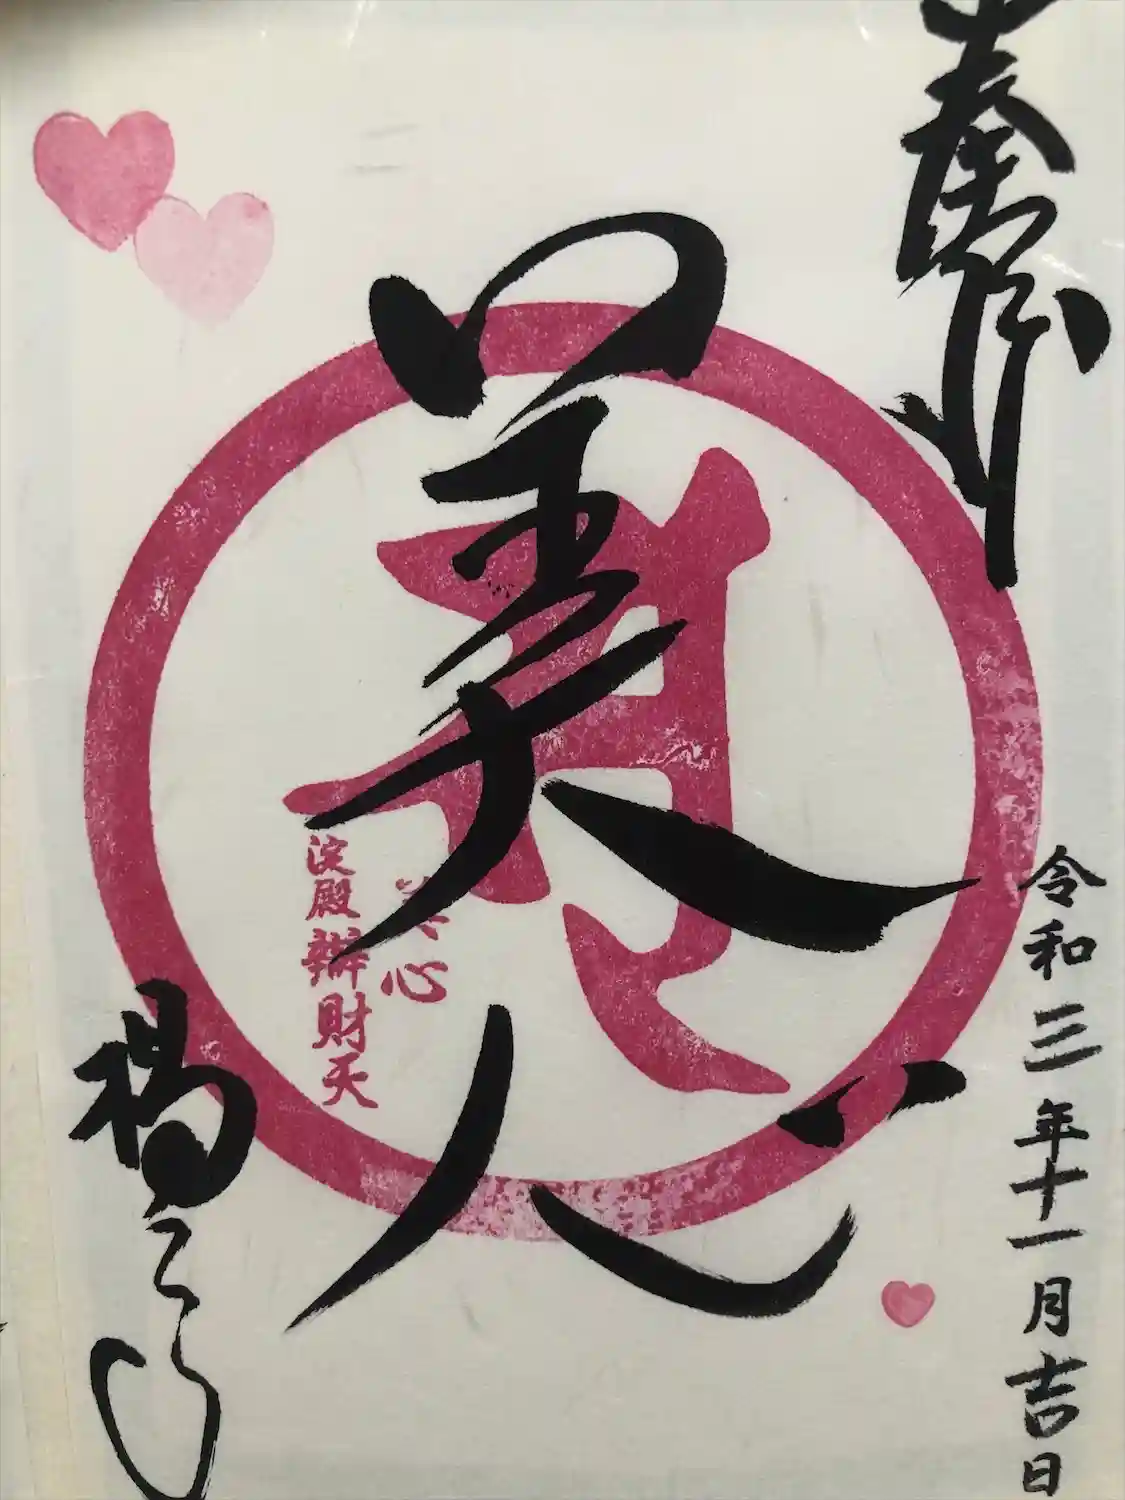 奉拝
令和三年十一月吉日
美人
淀殿辨財天
楊谷寺